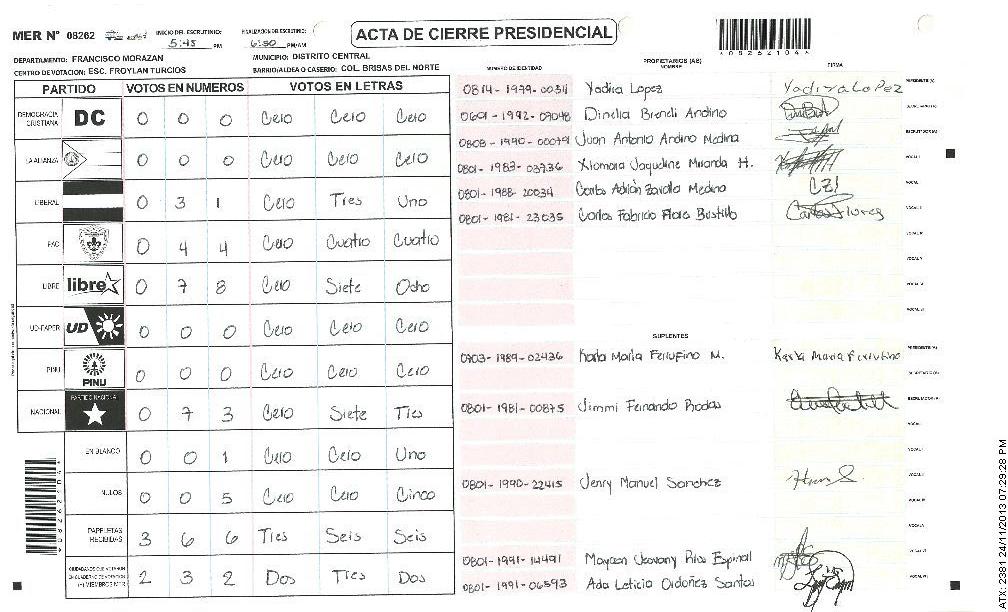 MER Nº 08262
INICIO DEL ESCRUTINIO:
5:45 PM
FINALIZACION DEL ESCRUTINIO:
6:50 PM/AM
ACTA DE CIERRE PRESIDENCIAL
*08262104*
DEPARTAMENTO: FRANCISCO MORAZAN
MUNICIPIO: DISTRITO CENTRAL
CENTRO DE VOTACION: ESC. FROYLAN TURCIOS
BARRIO/ALDEA O CASERIO: COL. BRISAS DEL NORTE
PARTIDO VOTOS EN NUMEROS VOTOS EN LETRAS
DEMOCRACIA CRISTIANA DC 0 0 0 Cero Cero Cero
LA ALIANZA 0 0 0 Cero Cero Cero
LIBERAL 0 3 1 Cero Tres Uno
PAC 0 4 4 Cero Cuatro Cuatro
LIBRE libre 0 7 8 Cero Siete Ocho
UD-FAPER UD 0 0 0 Cero Cero Cero
PINU PINU 0 0 0 Cero Cero Cero
NACIONAL PARTIDO NACIONAL 0 7 3 Cero Siete Tres
EN BLANCO 0 0 1 Cero Cero Uno
NULOS 0 0 5 Cero Cero Cinco
PAPELETAS RECIBIDAS 3 6 6 Tres Seis Seis
CIUDADANOS QUE VOTARON EN CUADERNO DE VOTACION (+) MIEMBROS MER 2 3 2 Dos Tres Dos
NUMERO DE IDENTIDAD
PROPIETARIOS (AS)
NOMBRE
FIRMA
0814-1979-00311 Yadira Lopez Yadira Lopez PRESIDENTE(A)
0601-1992-09048 Dinelia Brendi Andino
0808-1990-00079 Juan Antonio Andino Medina
0801-1983-03736 Xiomara Jaqueline Miranda H.
0801-1988-20034 Carlos Adrián Zavala Medina
0801-1981-23035 Carlos Fabricio Flores Bustillo Carlos Flores
SUPLENTES
0703-1989-02436 Karla Maria Ferrufino M. Karla Maria Ferrufino PRESIDENTE(A)
0801-1981-00875 Jimmi Fernando Rodas
0801-1990-22415 Jenry Manuel Sanchez
0801-1991-14491 Mayron Jeovany Rios Espinal
0801-1991-06593 Ada Leticia Ordoñez Santos
ATX-2381 24/11/2013 07:29:28 PM